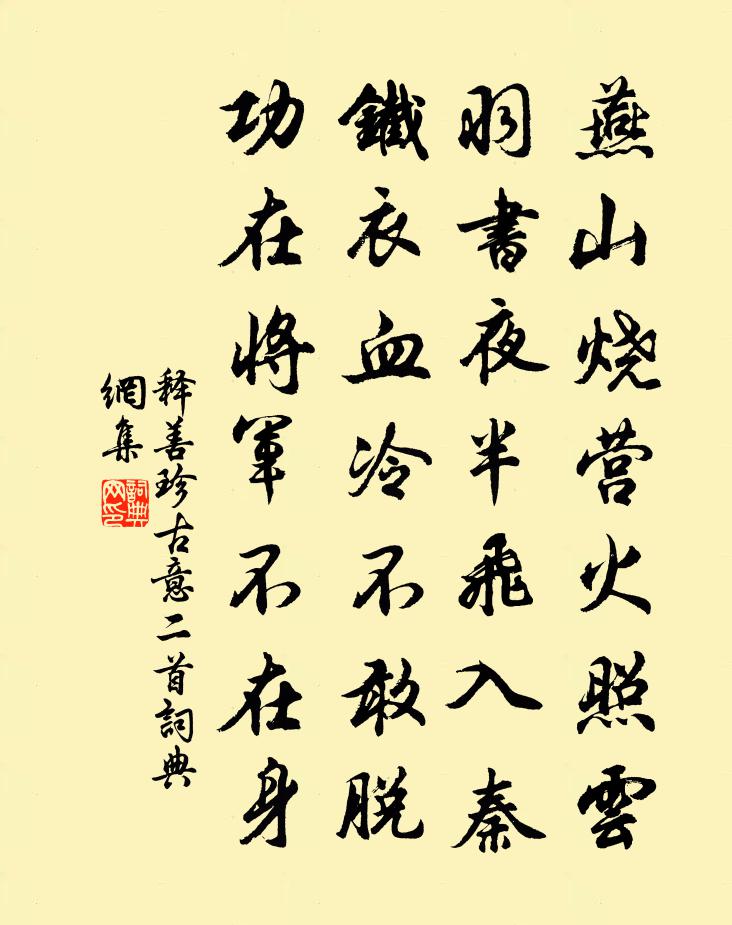 燕山烧营火照雲
羽書夜半飛入秦
鐵衣血冷不敢脱
功在將軍不在身
释善珍古意二首詞典
網集
詞典網印